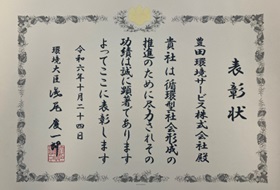 表彰状
豊田環境サービス株式会社殿
貴社は循環型社会形成の
推進のために尽力されその
功績は誠に顕著であります
よってここに表彰します
令和六年十月二十四日
環境大臣 浅尾慶一郎